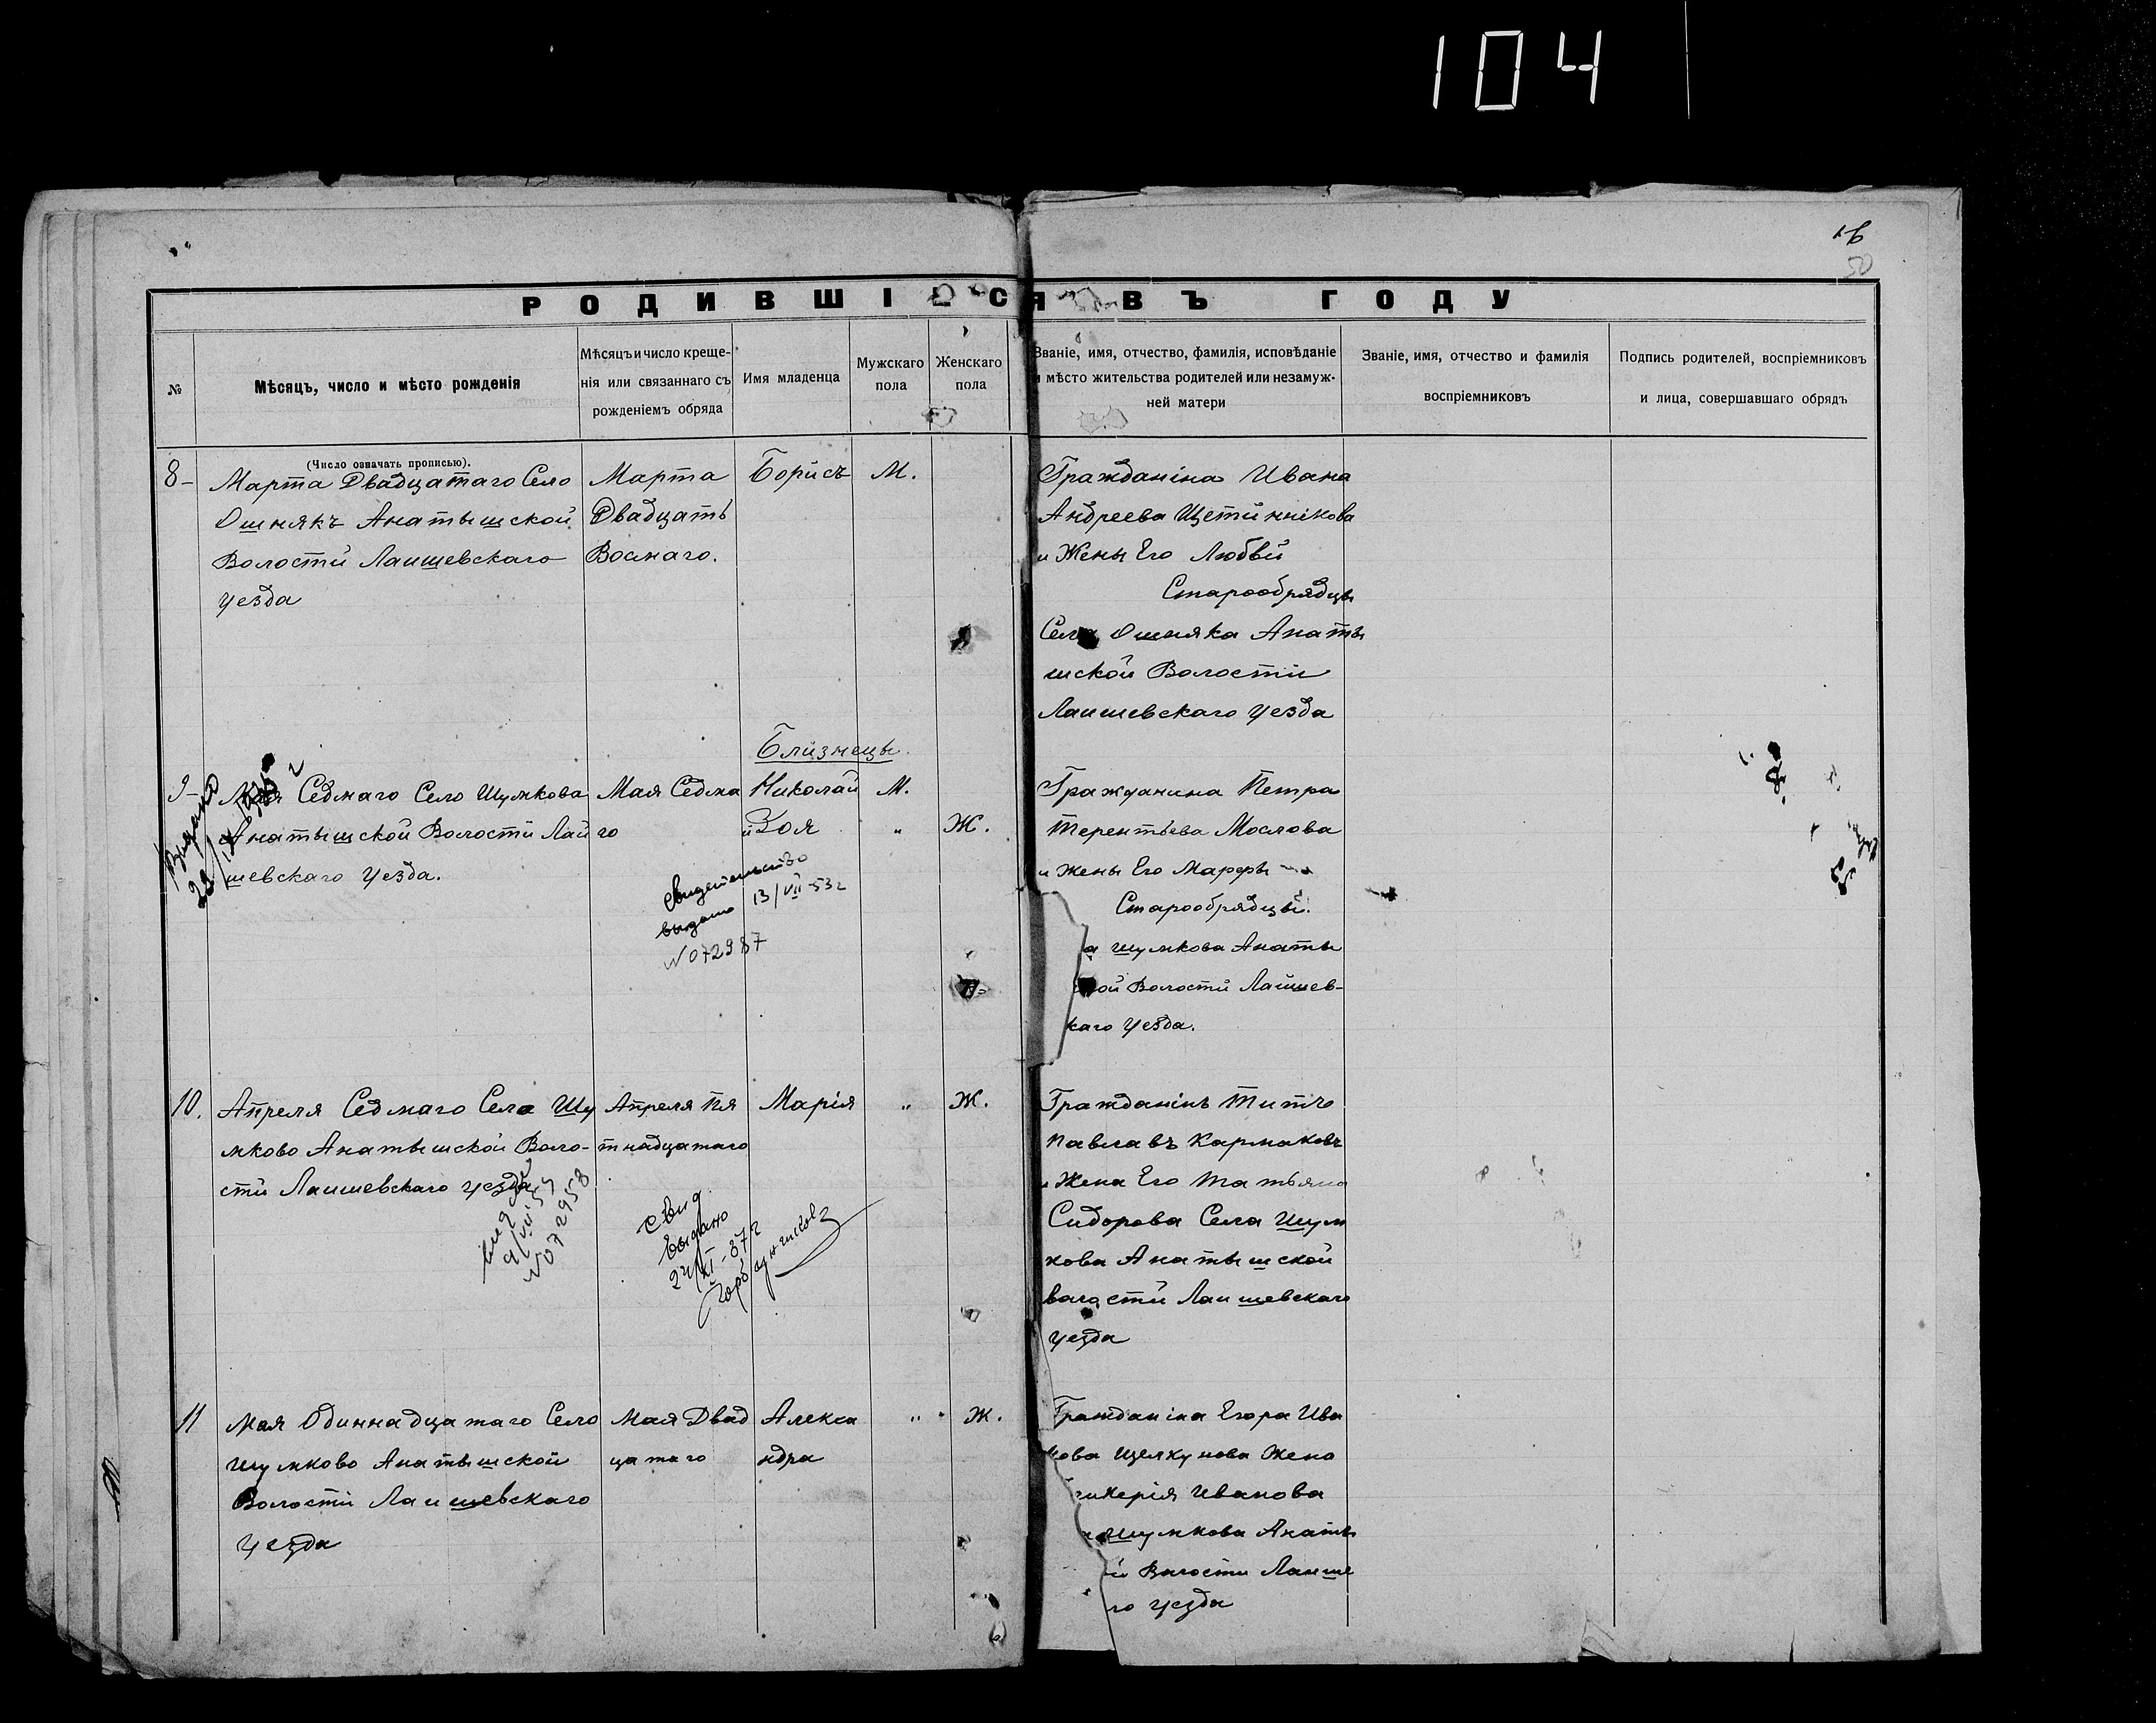 104
50
РОДИВШІЕСЯ ВЪ ГОДУ
№
Мѣсяцъ, число и мѣсто рожденія
Мѣсяцъ и число креще-
нія или связаннаго съ
рожденіемъ обряда
Имя младенца
Мужскаго
пола
Женскаго
пола
Званіе, имя, отчество, фамилія, исповѣданіе
и мѣсто жительства родителей или незамуж-
ней матери
Званіе, имя, отчество и фамилія
воспріемниковъ
Подпись родителей, воспріемниковъ
и лица, совершавшаго обрядъ
(Число означать прописью).
8-
Марта Двадцатаго Село
Ошнякъ Анатышской
Волости Лаишевскаго
уезда
Марта
Двадцать
Восмаго.
Борисъ
М.
Гражданіна Ивана
Андреева Щетиннікова
и Жены Его Любви
Старообрядцы
Села Ошняка Анаты
шской Волости
Лаишевскаго уезда
Близнецы.
9-
Мая Седмаго Село Шумкова
Анатышской Волости Лаи
шевскаго Уезда.
Выдано
Мая Седма
го
Николай
и Зоя
М.
"
Ж.
Свидетельство
выдано 13/VII-53г
№072987
Гражданина Петра
Терентьева Маслова
и Жены Его Марфы
Старообрядцы.
а Шумкова Анаты
кой Волости Лаишев-
каго Уезда.
10.
Апреля Седмаго Села Шу
мково Анатышской Воло-
сти Лаишевскаго уезда
№072958
Апреля Пя
тнадцатаго
Марія
"
Ж.
свид
выдано
24/XI-37г
Гражданінъ Титъ
Павлавъ Кармаковъ
и Жена Его Татьяна
Сидорова Села Шум
кова Анатышской
валости Лаишевскаго
уезда
11
Мая Одиннадцатаго Село
Шумково Анатышской
Волости Лаишевскаго
Уезда
Мая Двад
цатаго
Алекса
ндра
"
Ж.
Гражданіна Егора Ива
нова Щелкунова Жена
керія Иванова
а Шумкова Анаты
й Волости Лаише
го уезда